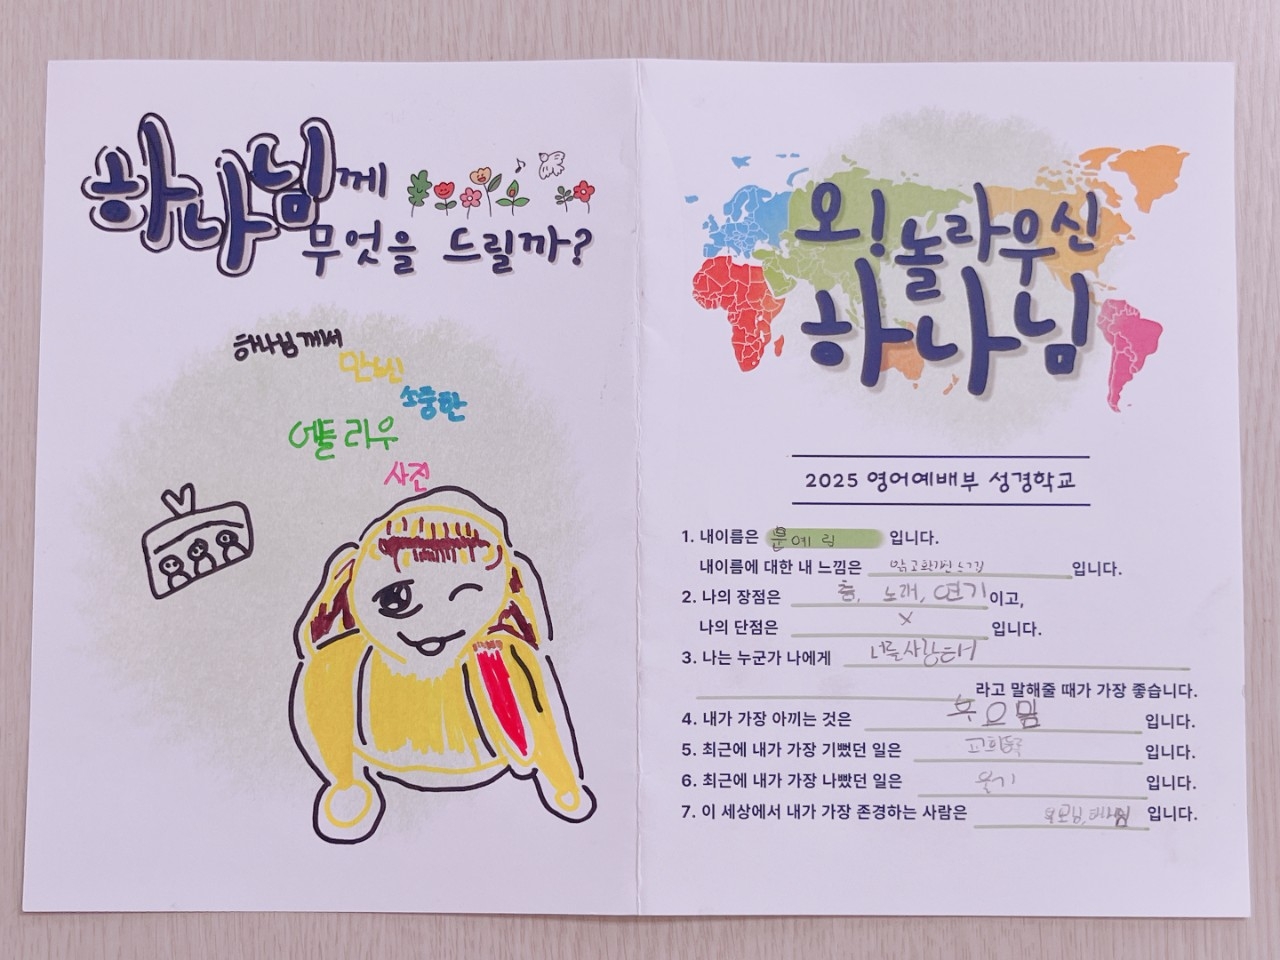 하나님께
무엇을 드릴까?
하나님께서
만드신
소중한
사전
오! 놀라우신
하나님
2025 영어예배부 성경학교
1. 내이름은 문예림 입니다.
내이름에 대한 내 느낌은 입니다.
2. 나의 장점은 춤, 노래, 연기 이고,
나의 단점은 X 입니다.
3. 나는 누군가 나에게 너를사랑해
라고 말해줄 때가 가장 좋습니다.
4. 내가 가장 아끼는 것은 입니다.
5. 최근에 내가 가장 기뻤던 일은 입니다.
6. 최근에 내가 가장 나빴던 일은 울기 입니다.
7. 이 세상에서 내가 가장 존경하는 사람은 입니다.